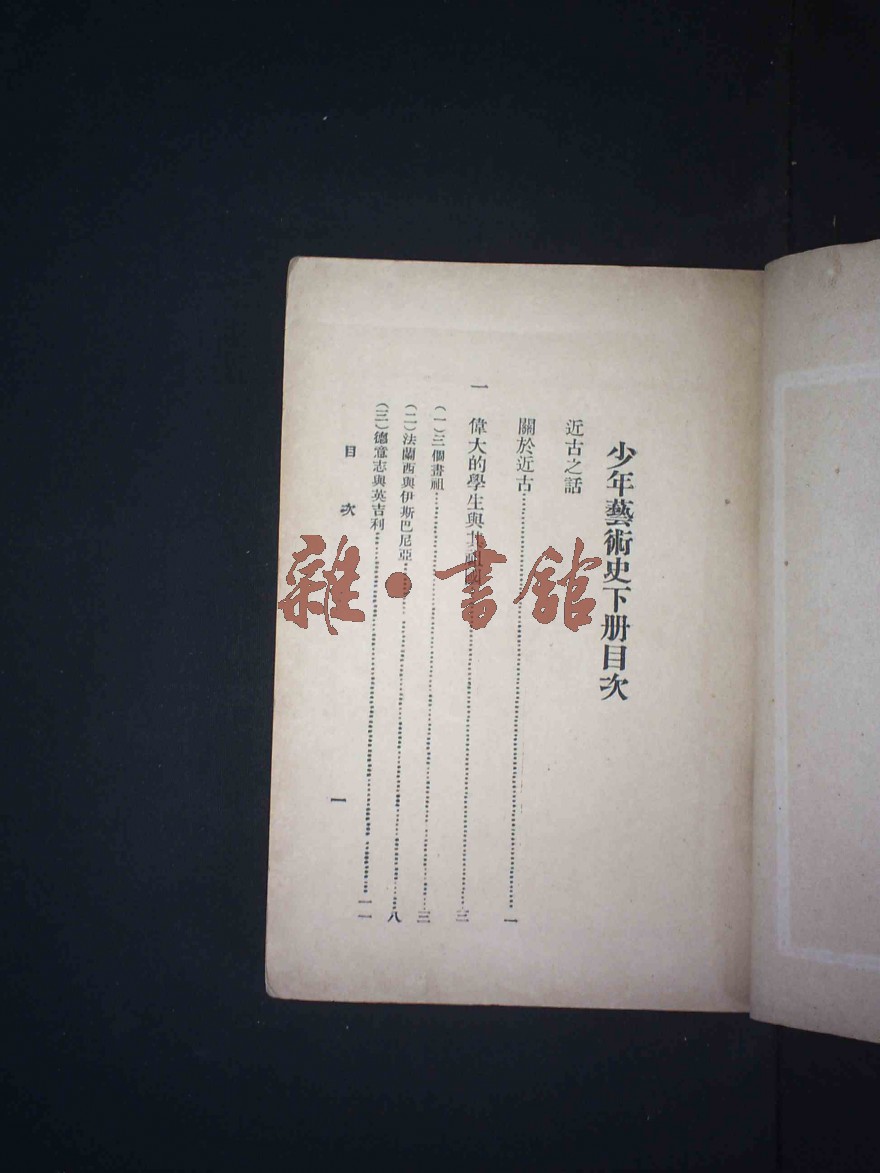 少年藝術史下册目次
近古之話
關於近古……一
一 偉大的學生與其祖國……三
(一)三個畫祖……三
(二)法蘭西與伊斯巴尼亞……八
(三)德意志與英吉利……一一
目次
一
雜·書館